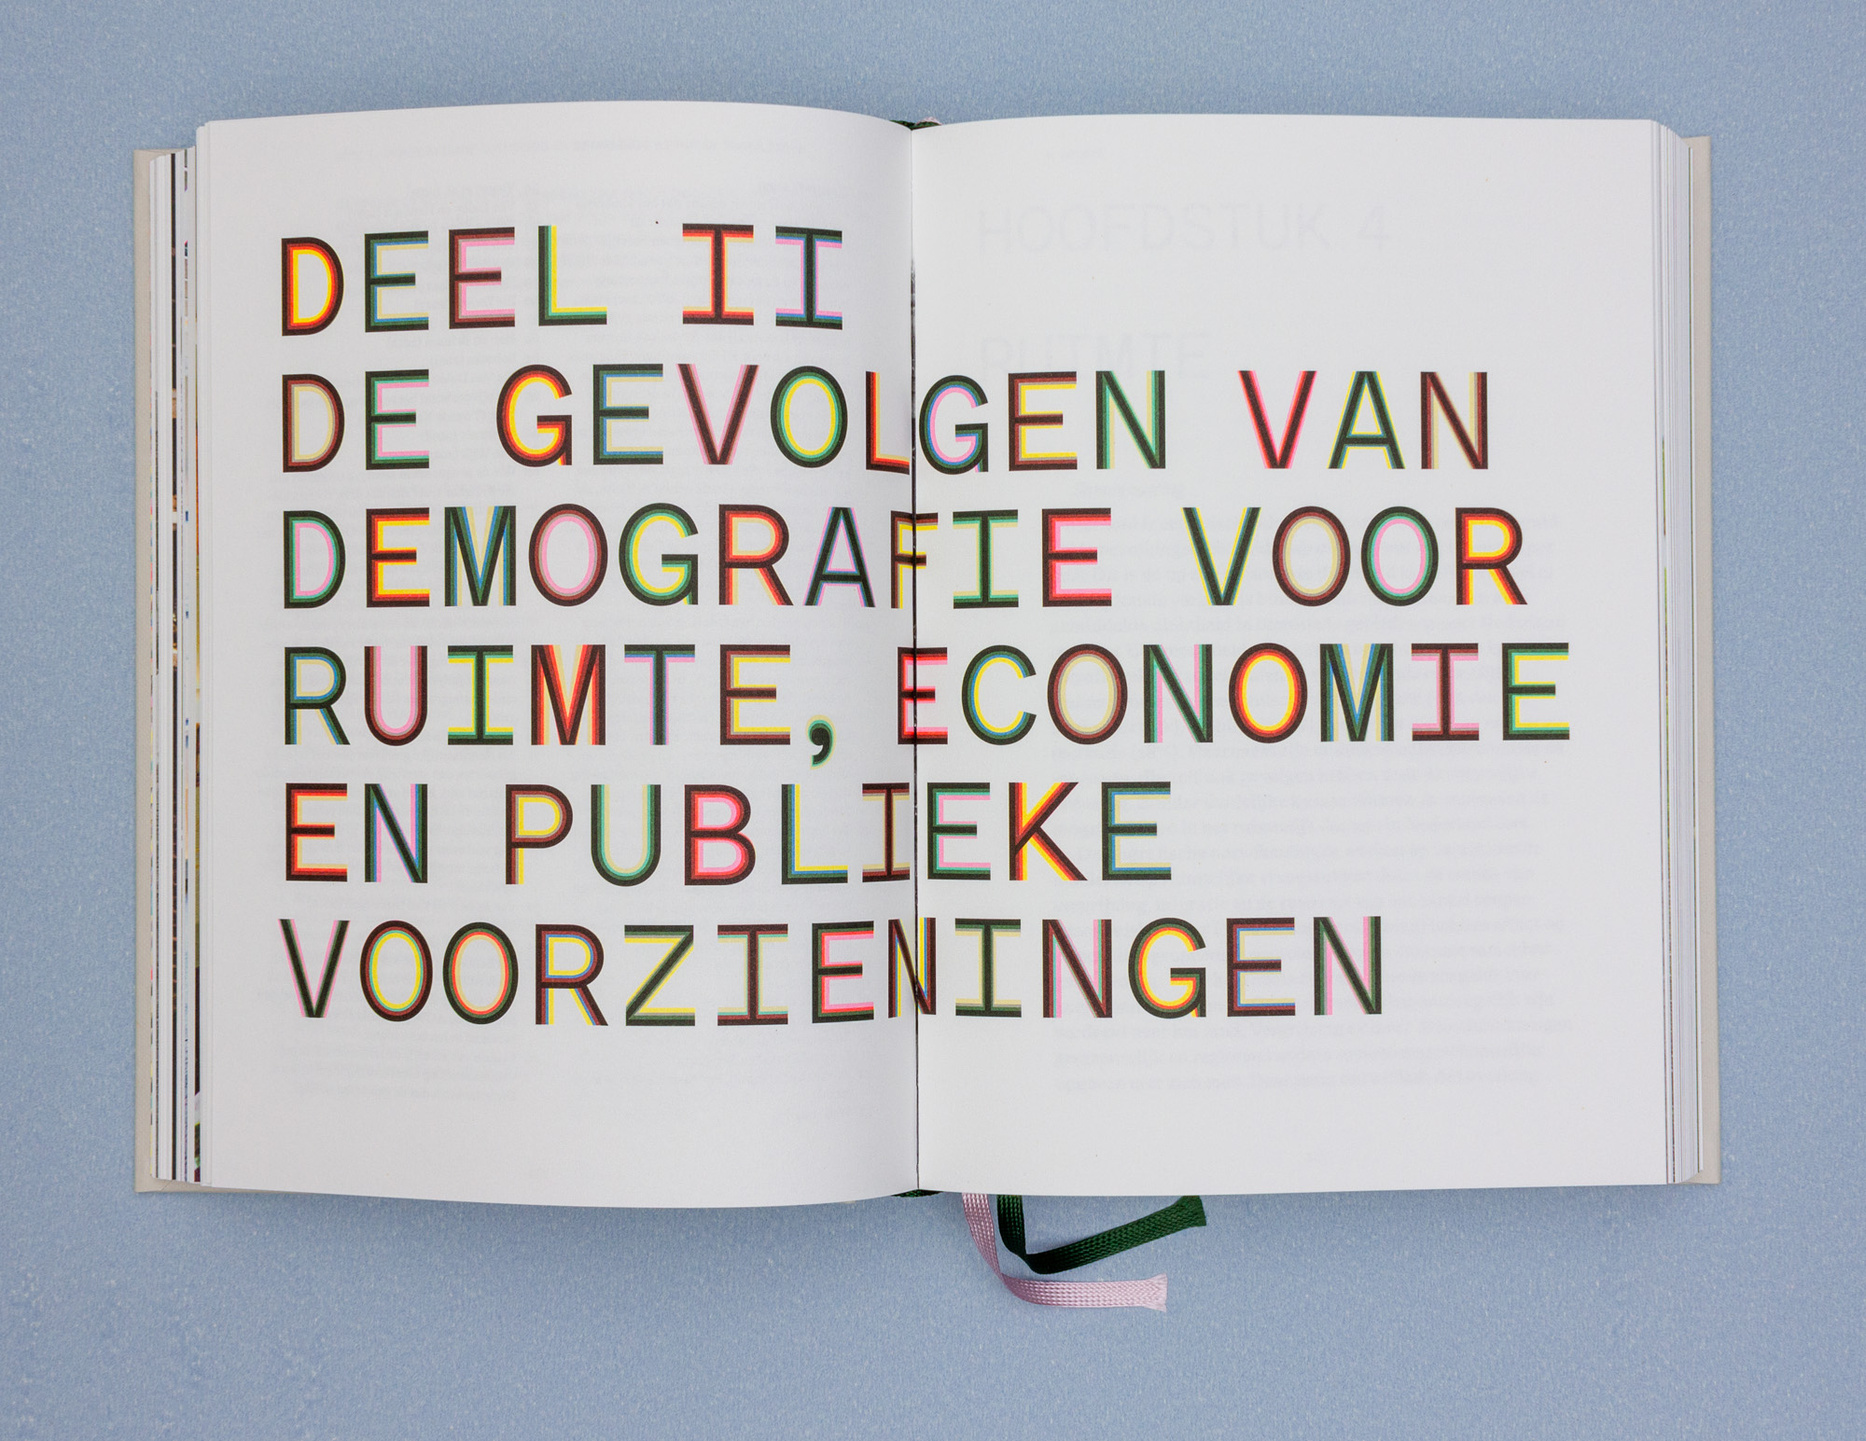 DEEL II
DE GEVOLGEN VAN
DEMOGRAFIE VOOR
RUIMTE, ECONOMIE
EN PUBLIEKE
VOORZIENINGEN
HOOFDSTUK 4
RUIMTE